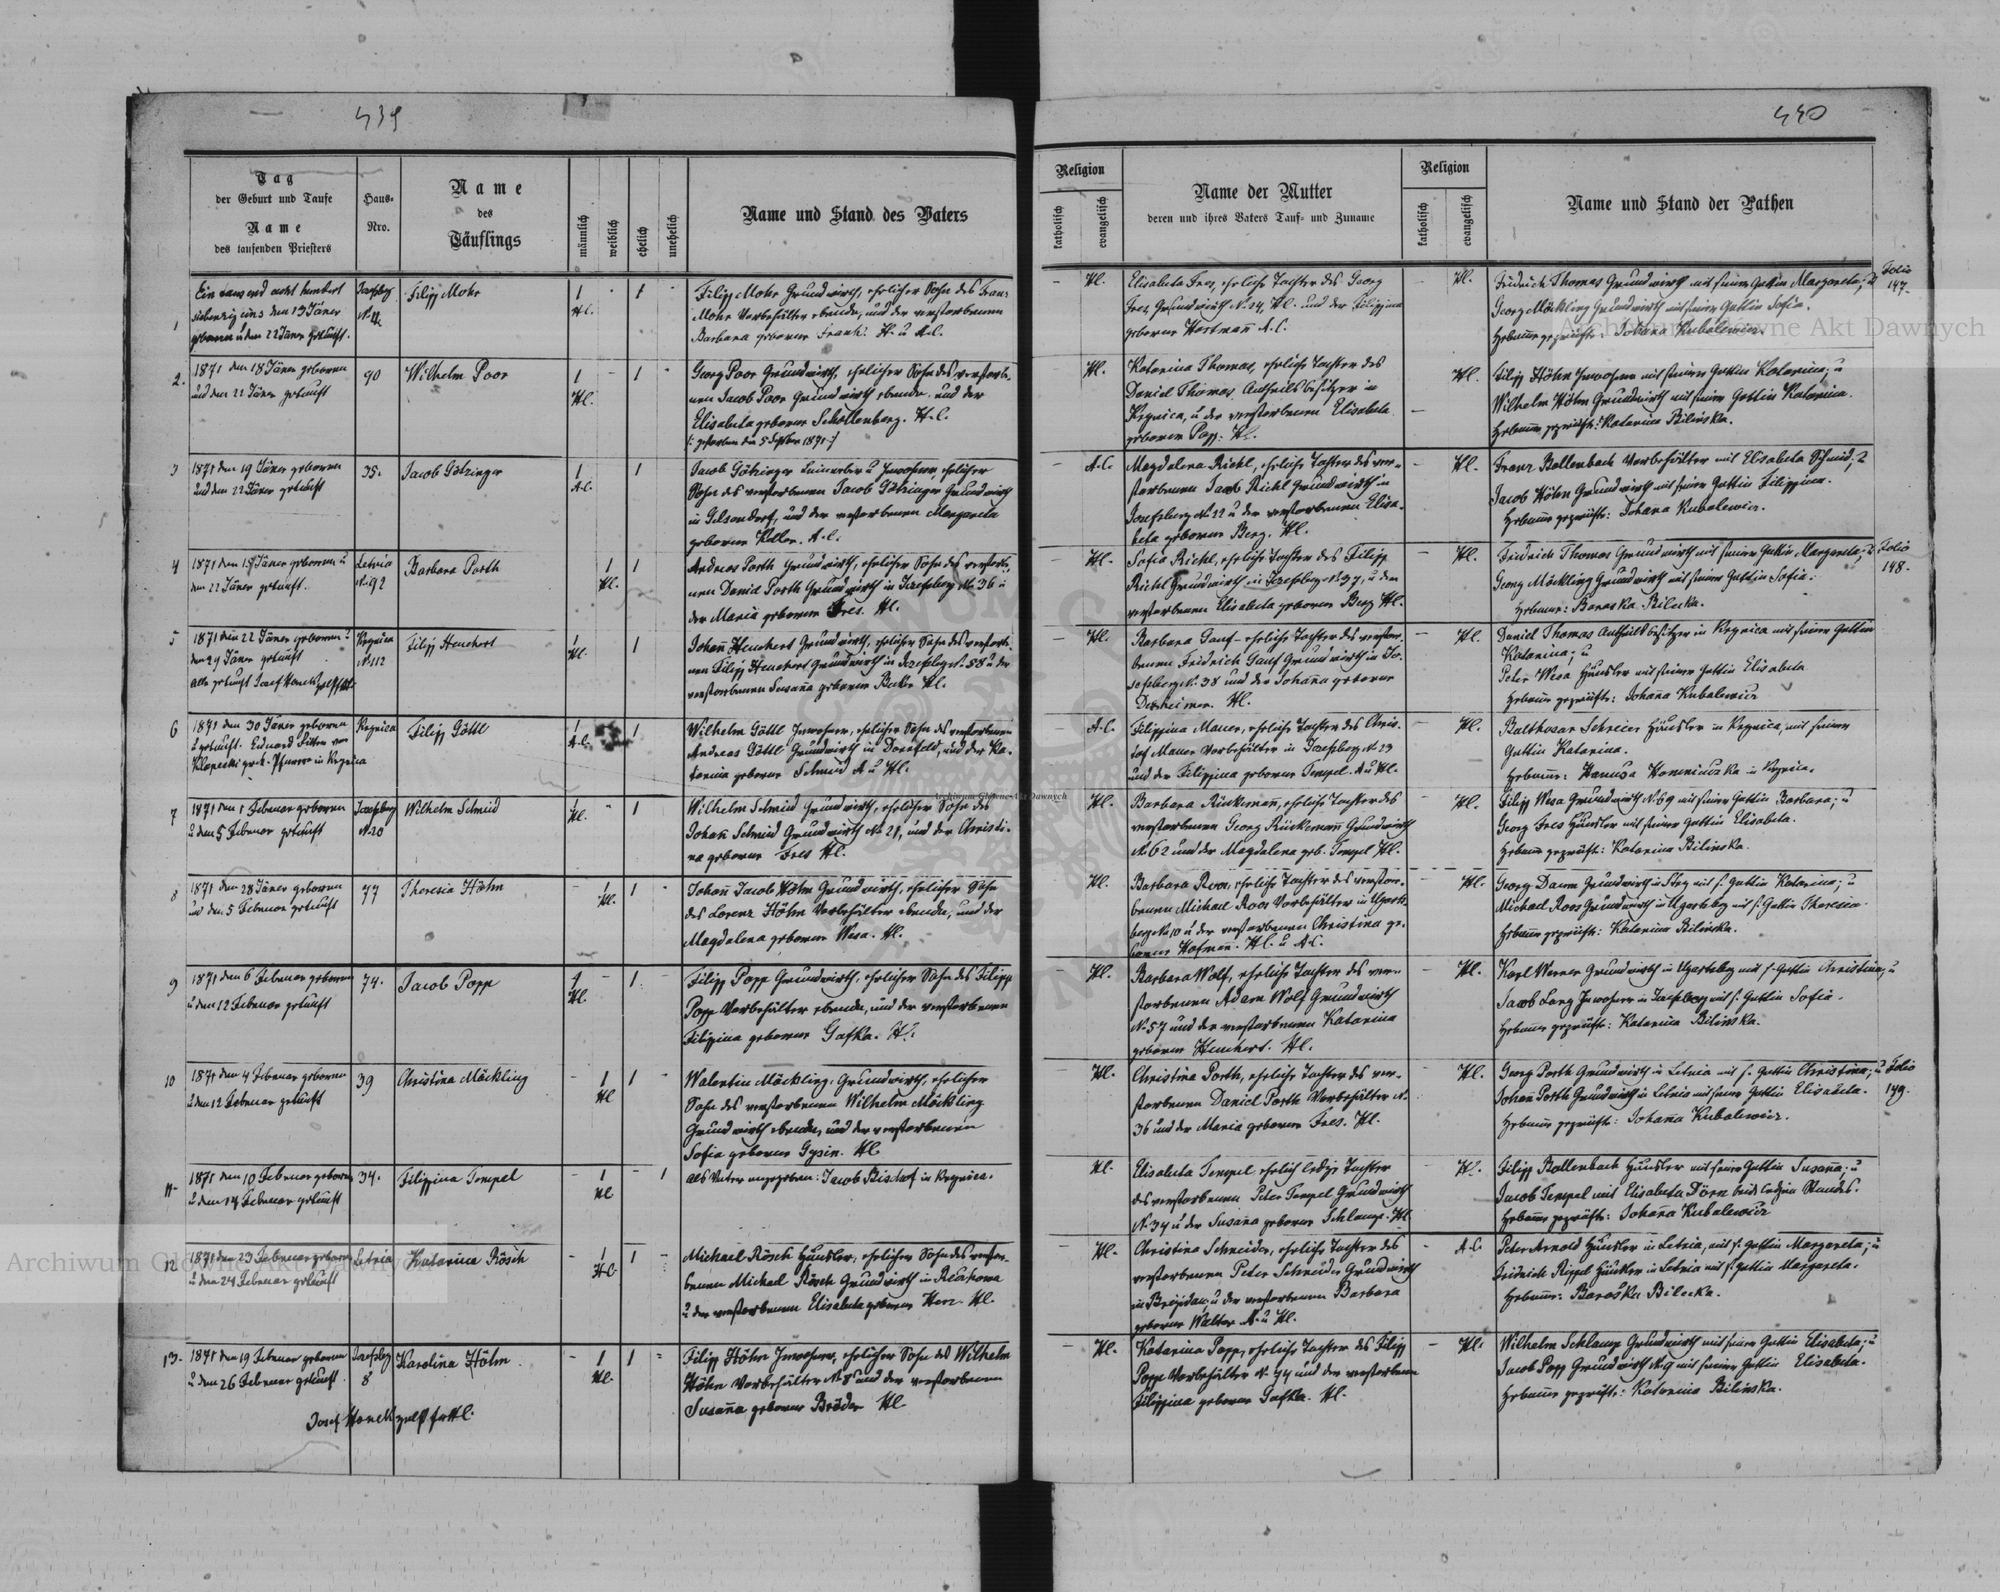 439
Tag
der Geburt und Taufe
Name
des taufenden Priesters
Haus-
Nro.
Name
des
Täuflings
männlich
weiblich
ehelich
unehelich
Name und Stand des Vaters
1
Ein tausend acht hundert
siebenzig eins den 13 Jäner
geboren u den 22 Jäner getauft.
Josefsberg
Filipp Mohr
1
1
Hl.
Filipp Mohr Grundwirth, ehelicher Sohn des Franz
Mohr Vorbehälter ebenda, und der verstorbenen
Barbara geborene Frank. H. u A.C.
2.
1871 den 18 Jäner geboren
und den 22 Jäner getauft
90
Wilhelm Poor
1
-
1
-
Hl.
Georg Poor Grundwirth, ehelicher Sohn des verstorbe-
nen Jacob Poor Grundwirth ebenda und der
Elisabeta geborene Schollenberg. H.C.
3
1871 den 19 Jäner geboren
und den 22 Jäner getauft
35.
Jacob Götzinger
1
1
A.C.
Jacob Götzinger Leinweber u Inwohner, ehelicher
Sohn des verstorbenen Jacob Götzinger Grundwirth
in Gelsendorf, und der verstorbenen Margareta
geborene Keller. A.C.
4
1871 den 18 Jäner geboren u
den 22 Jäner getauft.
Letnia
N. 92
Barbara Porth
1
1
Hl.
Andreas Porth Grundwirth, ehelicher Sohn des verstorbe-
nen Daniel Porth Grundwirth in Josefsberg No 36 u
der Maria geborene Fres. Hl.
5
1871 den 22 Jäner geboren u
den 29 Jäner getauft
Krynica
N. 112
Filipp Heuchert
1
1
Hl.
Johan̄ Heuchert Grundwirth, ehelicher Sohn des verstorbe-
nen Filipp Heuchert Grundwirth in Josefsberg N. 58 u der
verstorbenen Susan̄a geborene Becker Hl.
6
1871 den 30 Jäner geboren
u getauft. Eduard Ritter von
Klopecki gr.k. Pfarrer in Krynica
Krynica
Filipp Göttl
1
1
A.C.
Wilhelm Göttl Inwohner, ehelicher Sohn des verstorbenen
Andreas Göttl Grundwirth in Dornfeld, und der Ka-
tarina geborene Schmid A u Hl.
7
1871 den 1 Februar geboren
u den 5 Februar getauft
Josefsberg
N. 20
Wilhelm Schmid
1
-
1
Hl.
Wilhelm Schmid Grundwirth, ehelicher Sohn des
Johan̄ Schmid Grundwirth No 21, und der Christi-
na geborene Fres Hl.
8
1871 den 28 Jäner geboren
und den 5 Februar getauft
77
Theresia Höhn
-
1
1
Hl.
Johan̄ Jacob Höhn Grundwirth, ehelicher Sohn
des Lorenz Höhn Vorbehälter ebenda, und der
Magdalena geborene Wesa. Hl.
9
1871 den 6 Februar geboren
u den 12 Februar getauft
74.
Jacob Popp
1
-
1
Hl.
Filipp Popp Grundwirth, ehelicher Sohn des Filipp
Popp Vorbehälter ebenda, und der verstorbenen
Filippina geborene Gafka. Hl.
10
1871 den 4 Februar geboren
u den 12 Februar getauft
39
Christina Möckling
-
1
1
-
Hl
Walentin Möckling, Grundwirth, ehelicher
Sohn des verstorbenen Wilhelm Möckling
Grundwirth ebenda, und der verstorbenen
Sofia geborene Gysin. Hl
11.
1871 den 10 Februar geboren
u den 14 Februar getauft
34.
Filippina Tempel
-
1
-
1
Hl
Als Vater angegeben: Jacob Bischof in Krynica.
12
1871 den 23 Februar geboren
u den 24 Februar getauft
Letnia
Katarina Rösch
-
1
1
Michael Rösch Häusler, ehelicher Sohn des verstor-
benen Michael Rösch Grundwirth in
u der verstorbenen Elisabeta geborene Herz. Hl.
13.
1871 den 19 Februar geboren
u den 26 Februar getauft
Josefsberg
8
Karolina Höhn
-
1
1
-
Hl.
Filipp Höhn Inwohner, ehelicher Sohn des Wilhelm
Höhn Vorbehälter N. 8 und der verstorbenen
Susan̄a geborene Bröder Hl
Josef
440
Religion
katholisch
evangelisch
Name der Mutter
deren und ihres Vaters Tauf- und Zuname
Religion
katholisch
evangelisch
Name und Stand der Pathen
- Hl.
Elisabeta Fres, eheliche Tochter des Georg
Fres Grundwirth N. 24, Hl. und der Filippina
geborene Hartman̄ A.C.
- Hl.
Fridrich Thomas Grundwirth mit seiner Gattin Margareta; u
Georg Möckling Grundwirth mit seiner Gattin Sofia.
Hebam̄e geprüfte: Johana Kubalewicz.
Folio
147.
Hl.
Katarina Thomas, eheliche Tochter des
Daniel Thomas Antheilsbesitzer in
Krynica, u der verstorbenen Elisabeta
geborene Popp. Hl.
- Hl.
Filipp Höhn Inwohner mit seiner Gattin Katarina; u
Wilhelm Höhn Grundwirth mit seiner Gattin Katarina.
Hebam̄e geprüfte: Katarina Bilinska.
- A.C.
Magdalena Richl, eheliche Tochter des ver-
storbenen Jacob Richl Grundwirth in
Josefsberg N. 22 u der verstorbenen Elisa-
beta geborene Berg. Hl.
- Hl.
Franz Bollenbach Vorbehälter mit Elisabeta Schmid; u
Jacob Höhn Grundwirth mit seiner Gattin Filippina.
Hebam̄e geprüfte: Johana Kubalewicz.
- Hl.
Sofia Richl, eheliche Tochter des Filipp
Richl Grundwirth in Josefsberg N. 37, u der
verstorbenen Elisabeta geborene Berg Hl.
- Hl.
Fridrich Thomas Grundwirth mit seiner Gattin Margareta; u
Georg Möckling Grundwirth mit seiner Gattin Sofia.
Hebam̄e: Baraska Bilecka.
Folio
148.
- Hl.
Barbara Ganf eheliche Tochter des verstor-
benen Fridrich Ganf Grundwirth in Jo-
sefsberg N. 38 und der Johan̄a geborene
Hl.
- Hl.
Daniel Thomas Antheilsbesitzer in Krynica mit seiner Gattin
Katarina; u
Peter Wesa Häusler mit seiner Gattin Elisabeta
Hebam̄e geprüfte: Johan̄a Kubalewicz
- A.C.
Filippina Mauer, eheliche Tochter des Chris-
tof Mauer Vorbehälter in Josefsberg N. 23
und der Filippina geborene Tempel. A u Hl.
- Hl.
Balthasar Schreier Häusler in Krynica, mit seiner
Gattin Katarina.
Hebam̄e: in Krynica.
Hl.
Barbara Rückeman̄, eheliche Tochter des
verstorbenen Georg Rückeman̄ Grundwirth
N. 62 und der Magdalena geb. Tempel Hl.
- Hl.
Filipp Wesa Grundwirth N. 69 mit seiner Gattin Barbara; u
Georg Fres Häusler mit seiner Gattin Elisabeta.
Hebam̄e geprüfte: Katarina Bilinska.
Hl.
Barbara Roos, eheliche Tochter des verstor-
benen Michael Roos Vorbehälter in Ugarts-
berg No 10 u der verstorbenen Christina ge-
borene Hofman. Hl. u A.C.
- Hl.
Georg Daum Grundwirth in Steg mit s. Gattin Katarina; u
Michael Roos Grundwirth in Ugartsberg mit s. Gattin Theresia.
Hebam̄e geprüfte: Katarina Bilinska.
- Hl.
Barbara Wolf, eheliche Tochter des ver-
storbenen Adam Wolf Grundwirth
No 57 und der verstorbenen Katarina
geborene Heuchert. Hl.
- Hl.
Karl Werner Grundwirth in Ugartsberg mit s. Gattin Christina; u
Jacob Lang Inwohner in Josefsberg mit s. Gattin Sofia.
Hebam̄e geprüfte: Katarina Bilinska.
Hl.
Christina Porth, eheliche Tochter des ver-
storbenen Daniel Porth Vorbehälter N.
36 und der Maria geborene Fres. Hl.
- Hl.
Georg Porth Grundwirth in Letnia mit s. Gattin Christina; u
Johan̄ Porth Grundwirth in Letnia mit seiner Gattin Elisabeta.
Hebam̄e geprüfte: Johan̄a Kubalewicz.
Folio
149.
Hl.
Elisabeta Tempel ehelich ledige Tochter
des verstorbenen Peter Tempel Grundwirth
N. 34 u der Susan̄a geborene Schlamp. Hl
- Hl.
Filipp Bollenbach Häusler mit seiner Gattin Susan̄a; u
Jacob Tempel mit Elisabeta Dörn beide ledigen Standes.
Hebam̄e geprüfte: Johan̄a Kubalewicz
- Hl.
Christina Schneider, eheliche Tochter des
verstorbenen Peter Schneider Grundwirth
in Brigidau, u der verstorbenen Barbara
geborene Walter A. u Hl.
- A.C.
Peter Arnold Häusler in Letnia, mit s. Gattin Margareta; u
Fridrich Rippel Häusler in Letnia mit s. Gattin Margareta.
Hebam̄e: Baraska Bilecka.
- Hl.
Katarina Popp, eheliche Tochter des Filipp
Popp Vorbehälter N. 74 und der verstorbenen
Filippina geborene Gafka. Hl.
- Hl.
Wilhelm Schlamp Grundwirth mit seiner Gattin Elisabeta; u
Jacob Popp Grundwirth N. 9 mit seiner Gattin Elisabeta.
Hebam̄e geprüfte: Katarina Bilinska.
Archiwum Główne Akt Dawnych
Archiwum Główne Akt Dawnych
Archiwum Główne Akt Dawnych